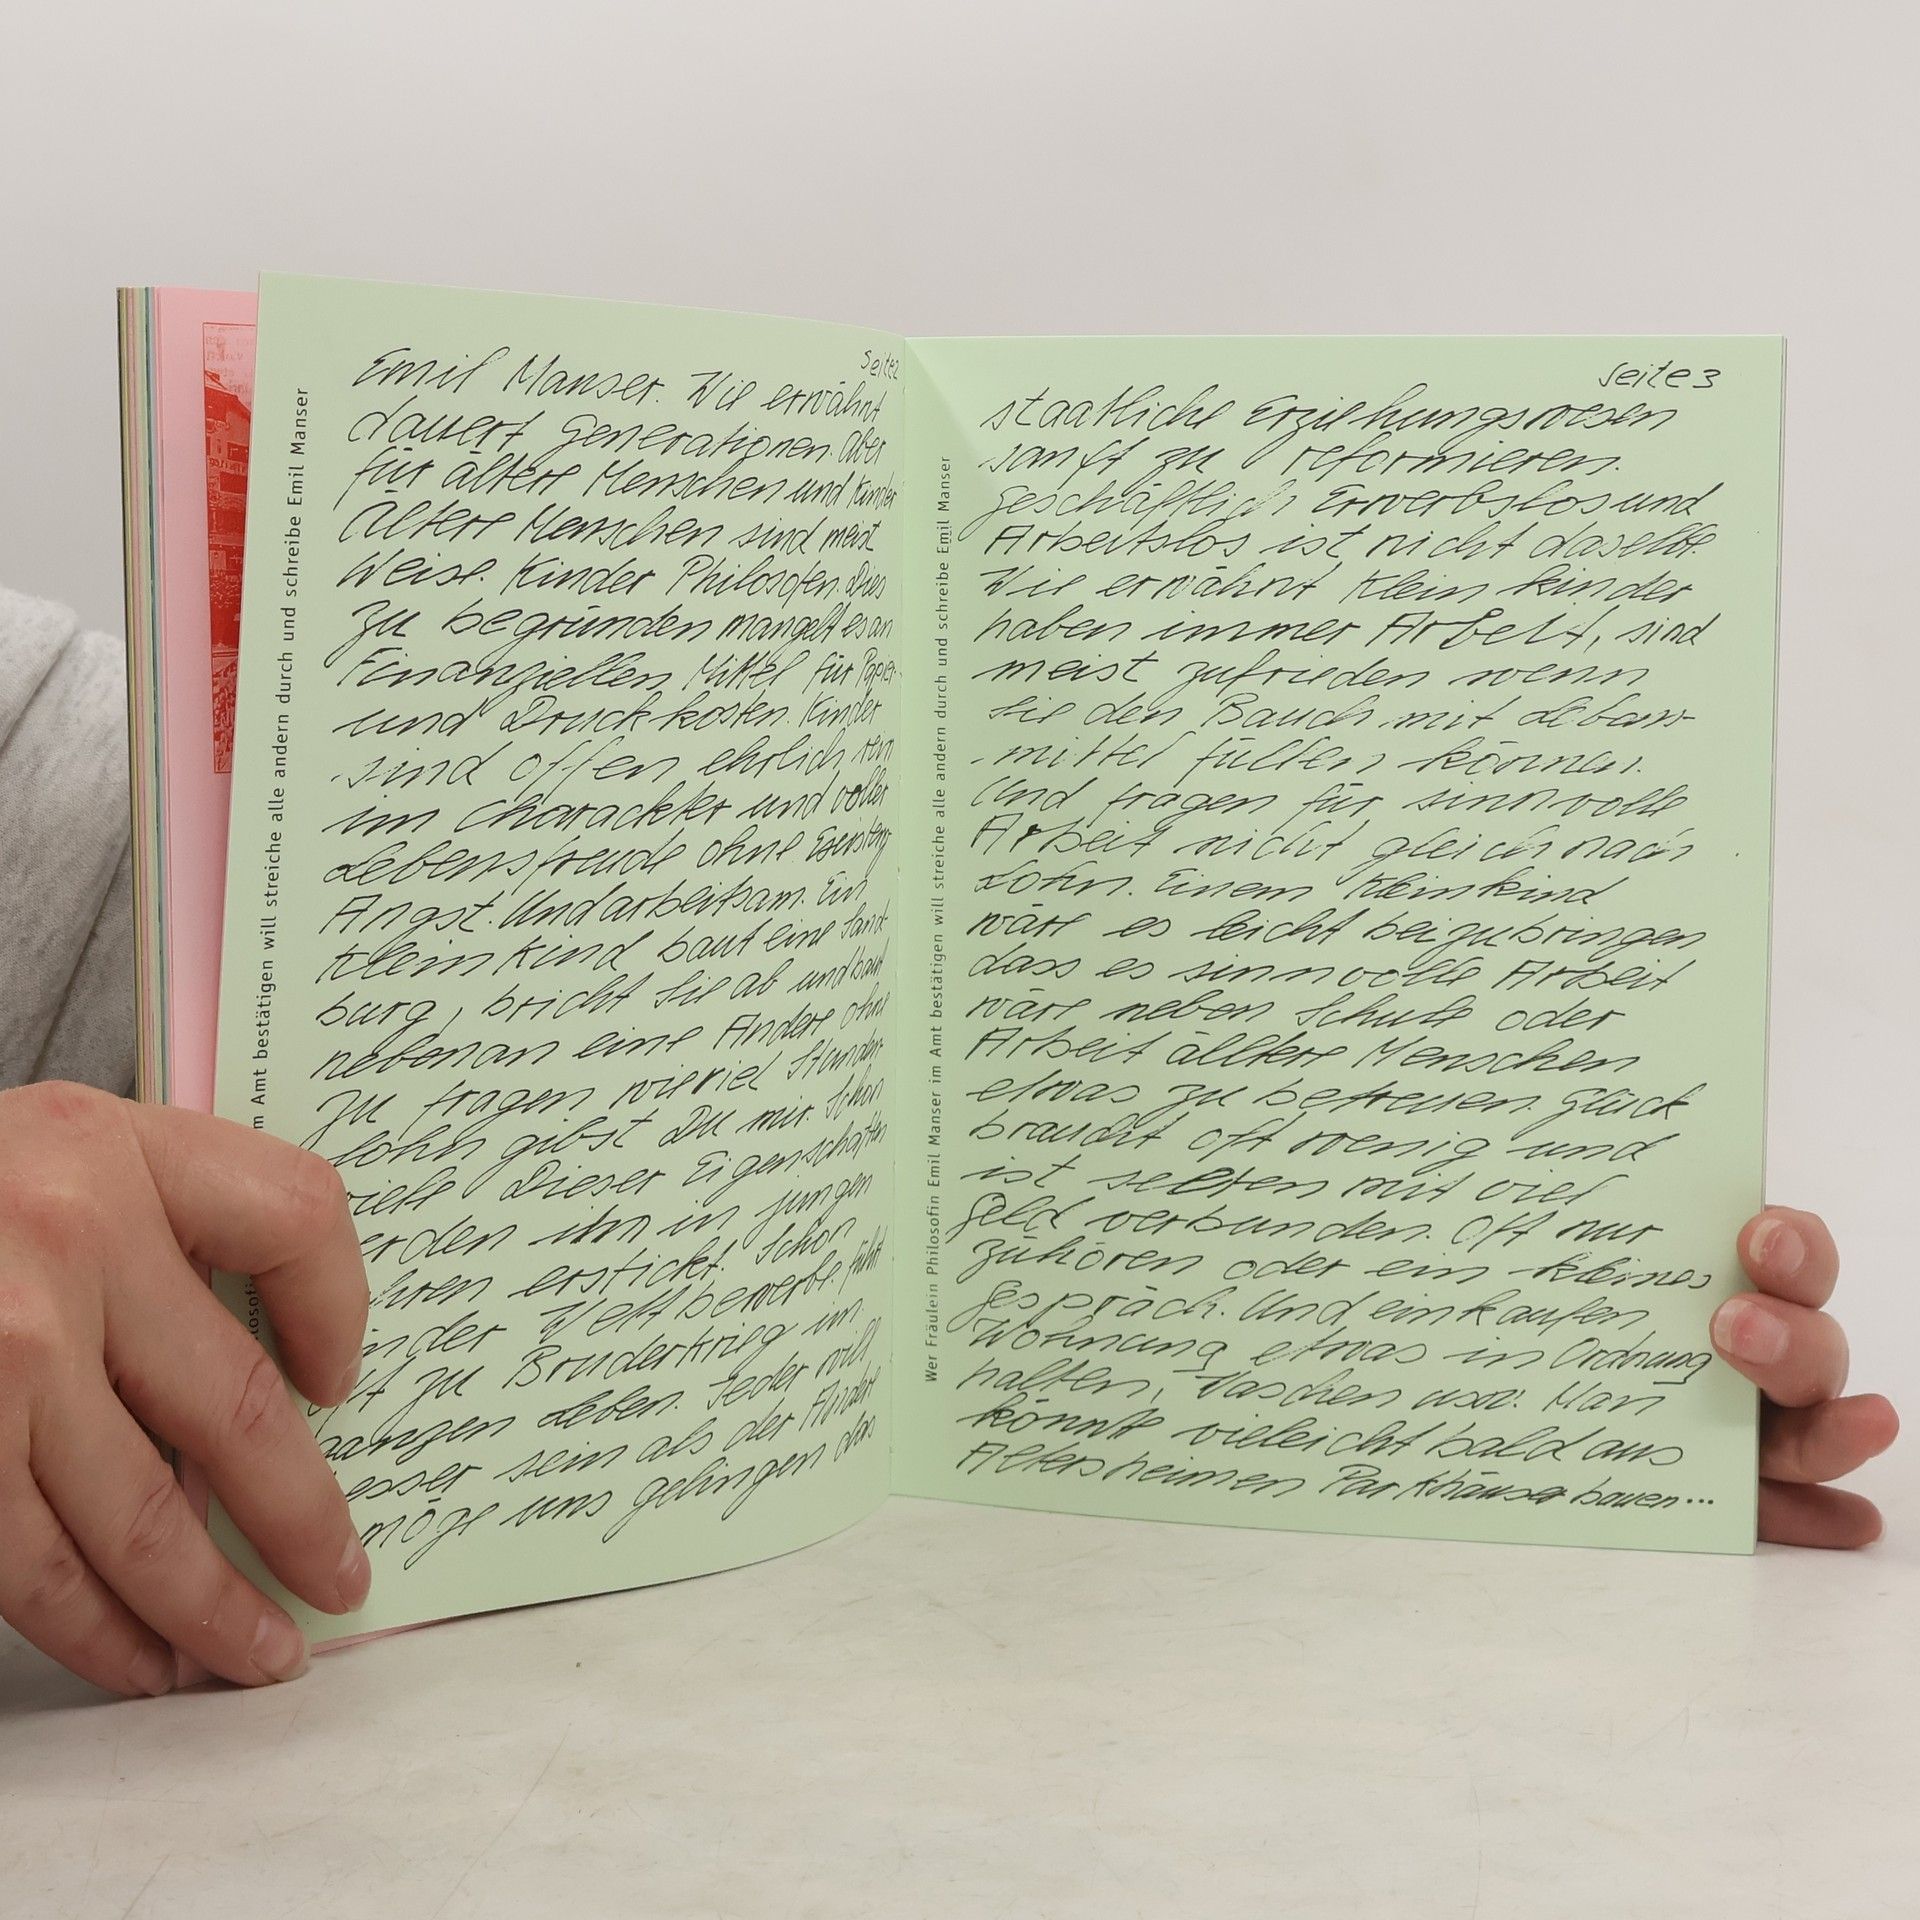 m Amt bestätigen will streiche alle andern durch und schreibe Emil Manser
Seite 2
Emil Manser. Wie erwähnt
dauert Generationen. Aber
für ältere Menschen und Kinder
Ältere Menschen sind meist
Weise. Kinder Philosofen. Dies
zu begründen mangelt es an
Finanziellen Mittel für Papier-
und Druckkosten. Kinder
sind offen ehrlich rein
im Charackter und voller
Lebensfreude ohne Existenz
Angst. Und arbeitsam. Ein
Kleinkind baut eine Sand-
burg, bricht sie ab und baut
nebenan eine Andere ohne
zu fragen wieviel Stunden-
lohn gibst Du mir. Schon
viele Dieser Eigenschaften
erden ihm in jungen
hren erstickt. Schon
inder Wettbewerbe führt
ft zu Bruderkrieg im
ganzen Leben. Jeder will
esser sein als der Andere
möge uns gelingen das
Wer Fräulein Philosofin Emil Manser im Amt bestätigen will streiche alle andern durch und schreibe Emil Manser
Seite 3
staatliche Erziehungswesen
sanft zu reformieren.
Geschäftlich Erwerbslos und
Arbeitslos ist nicht daselbe.
Wie erwähnt Kleinkinder
haben immer Arbeit, sind
meist zufrieden wenn
sie den Bauch mit Lebens-
mittel füllen können.
Und fragen für sinnvolle
Arbeit nicht gleich nach
Lohn. Einem Kleinkind
wäre es leicht beizubringen
dass es sinnvolle Arbeit
wäre neben Schule oder
Arbeit älltere Menschen
etwas zu betreuen. Glück
braucht oft wenig und
ist selten mit viel
Geld verbunden. Oft nur
zuhören oder ein kleines
Gespräch. Und einkaufen
Wohnung etwas in Ordnung
halten, Waschen usw. Man
könnte vieleicht bald aus
Altersheimen Parkhäuser bauen...